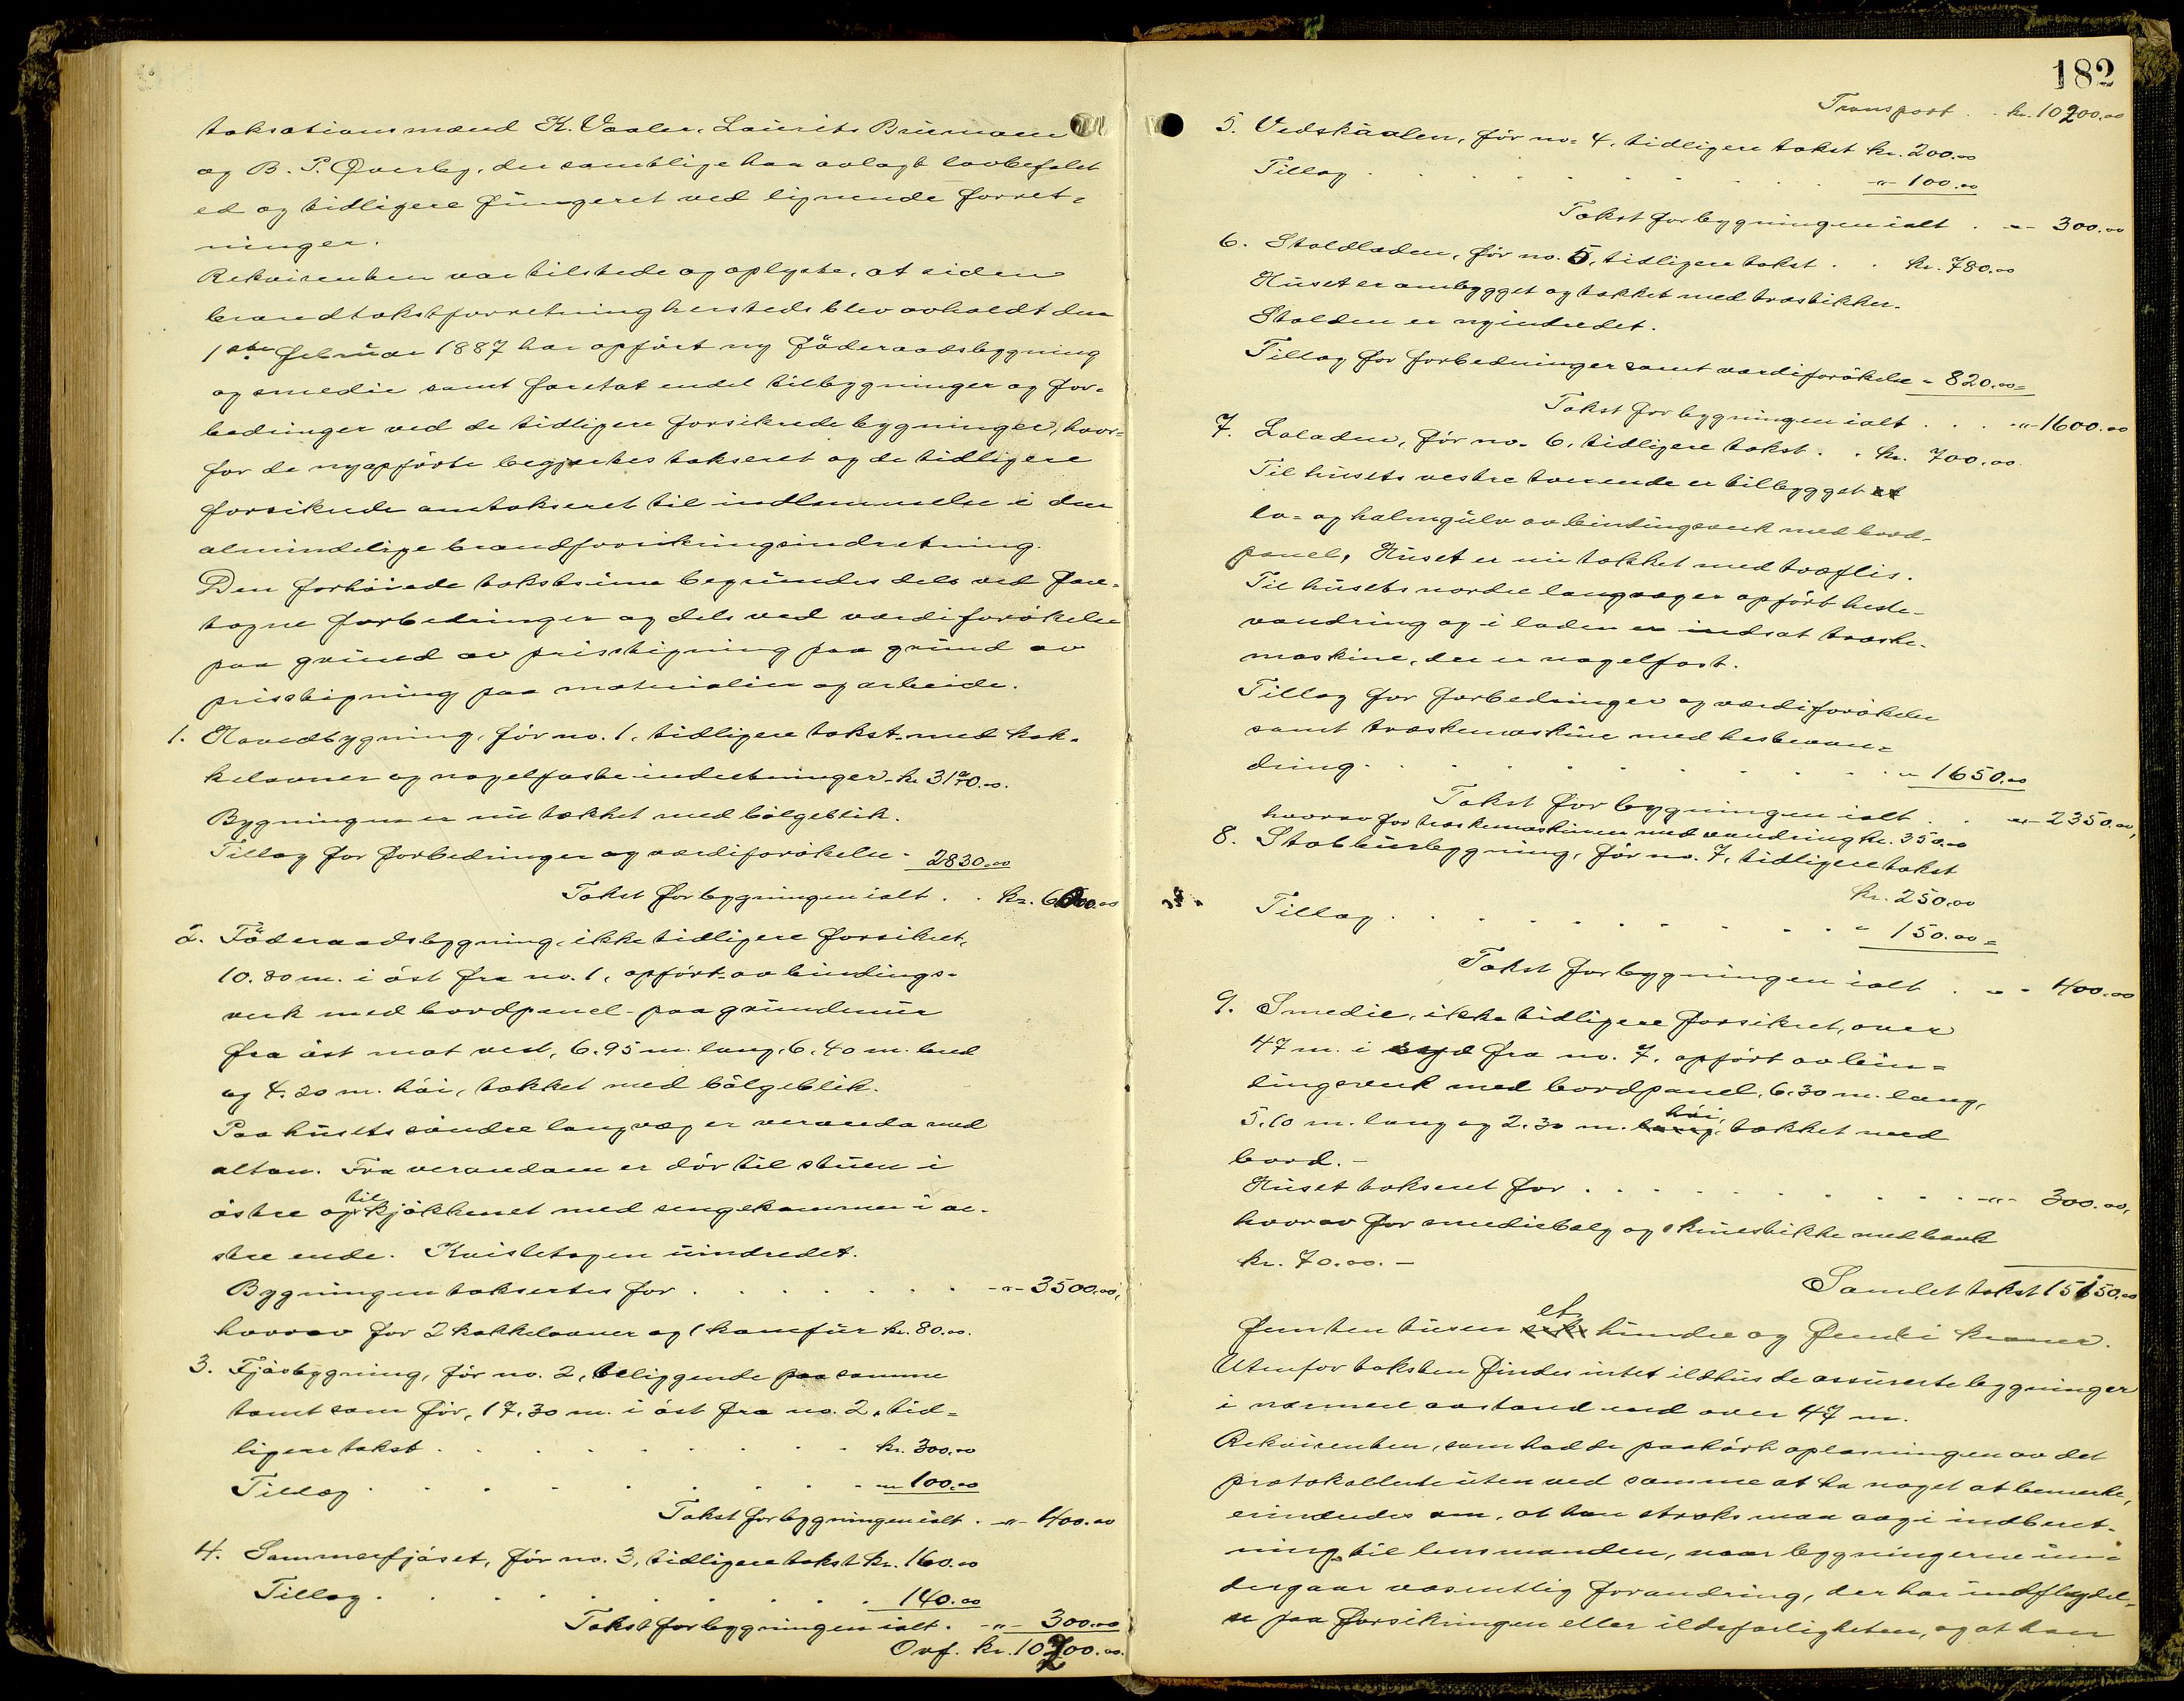 taksationsmænd K. Vaaler, Laurits Bruemoen
og B. P. Øverby, der samtlige har avlagt lovbefalet
ed og tidligere fungeret ved lignende forret-
ninger.
Rekvirenten var tilstede og oplyste, at siden
brandtakstforretning hersteds blev avholdt den
1ste februar 1887 har opført ny föderaadsbygning
og smedie samt foretat endel tilbygninger og for-
bedringer ved de tidligere forsikrede bygninger, hvor-
for de nyopförte begjærtes takseret og de tidligere
forsikrede omtakseret til indlemmelse i den
almindelige brandforsikringsindretning.
Den forhöiede takstsum begrundes dels ved fore-
tagne forbedringer og dels ved værdiforökelse
paa grund av prisstigning paa grund av
prisstigning paa materialier og arbeide.
1. Hovedbygning, för no. 1, tidligere takst med kak-
kelovner og nagelfaste indretninger - kr 3170.00.
Bygningen er nu tækket med bölgeblik.
Tillæg for forbedringer og værdiforökelse - 2830.00
Takst for bygningen ialt . . kr. 6000.00
2. Föderaadsbygning, ikke tidligere forsikret,
10.80 m. i öst fra no. 1, opfört av bindings-
verk med bordpanel paa grundmur
fra öst mot vest, 6.95 m. lang, 6.40 m. bred
og 4.20 m. höi, tækket med bölgeblik.
Paa husets söndre langvæg er veranda med
altan. Fra verandaen er dör til stuen i
östre og til kjökkenet med sengekammer i ve-
stre ende. Kvistetagen uindredet.
Bygningen takseres for . . . . . . . -"- 3500.00,
hvorav for 2 kakkelovner og 1 komfur kr. 80.00.
3. Fjösbygning, för no. 2, beliggende paa samme
tomt som för, 17.30 m. i öst fra no. 2, tid-
ligere takst . . . . . . . . kr. 300.00
Tillæg . . . . . . . . -"- 100.00
Takst for bygningen ialt . -"- 400.00
4. Sommerfjöset, för no. 3, tidligere takst kr. 160.00
Tillæg . . . . . . . . 140.00
Takst for bygningen ialt . -"- 300.00
Ovf. kr. 10200.00.
182
Transport . . kr. 10200.00
5. Vedskaalen, för no. 4, tidligere takst kr. 200.00
Tillæg . . . . . . . . -"- 100.00
Takst for bygningen ialt . -"- 300.00
6. Staldladen, för no. 5, tidligere takst . . kr. 780.00
Huset er ombygget og tækket med træstikker.
Stalden er nyindredet.
Tillæg for forbedringer samt værdiforökelse - 820.00
Takst for bygningen ialt . . . -"- 1600.00
7. Laladen, för no. 6, tidligere takst . . kr. 700.00
Til husets vestre tverende er tilbygget et
lo- og halmgulv av bindingsverk med bord-
panel, Huset er nu tækket med træflis.
Til husets nordre langvæg er opfört heste-
vandring og i laden er indsat træske-
maskine, der er nagelfast.
Tillæg for forbedringer og værdiforökelse
samt træskemaskine med hestevan-
dring . . . . . . . . . -"- 1650.00
Takst for bygningen ialt . . -"- 2350.00,
hvorav for træskemaskinen med vandring kr. 350.00
8. Stabbursbygning, för no. 7, tidligere takst
kr. 250.00
Tillæg . . . . . . . . . " 150.00
Takst for bygningen ialt . -"- 400.00
9. Smedie, ikke tidligere forsikret, over
47 m. i syd fra no. 7, opfört av bin-
dingsverk med bordpanel, 6.30 m. lang,
5.10 m. lang og 2.30 m. lang höi, tækket med
bord. -
Huset takseret for . . . . . . . . . -"- 300.00,
hvorav for smediebælg og skruestikke med bænk
kr. 70.00. -
Samlet takst 15150.00
femten tusen seks et hundre og femti kroner.
Utenfor taksten findes intet ildhus de assurerte bygninger
i nærmere avstand end over 47 m.
Rekvirenten, som hadde paahört oplæsningen av det
protokollerte uten ved samme at ha noget at bemerke,
erindredes om, at han straks maa avgi indberet-
ning til lensmanden, naar bygningerne un-
dergaar væsentlig forandring, der har indflydel-
se paa forsikringen eller ildsfarligheten, og at han